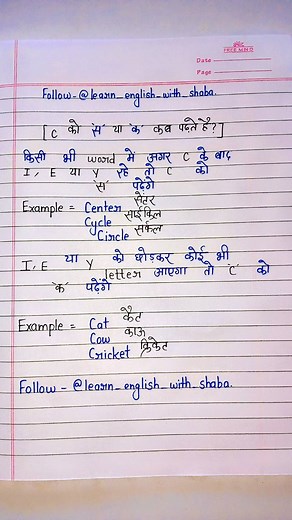 Date
Page
Follow-@learn_english_with_shaba.
[C को 'स' या 'क' कब पढ़ते है?]
किसी भी word में अगर C के बाद
I, E या Y रहे तो C को
'स' पढ़ेंगे
Example = Center सेंटर
Cycle साईकिल
Circle सर्कल
I, E या Y को छोड़कर कोई भी
letter आएगा तो 'C' को
'क' पढ़ेंगे
Example = Cat कैट
Cow काऊ
Cricket क्रिकेट
Follow - @learn_english_with_shaba.